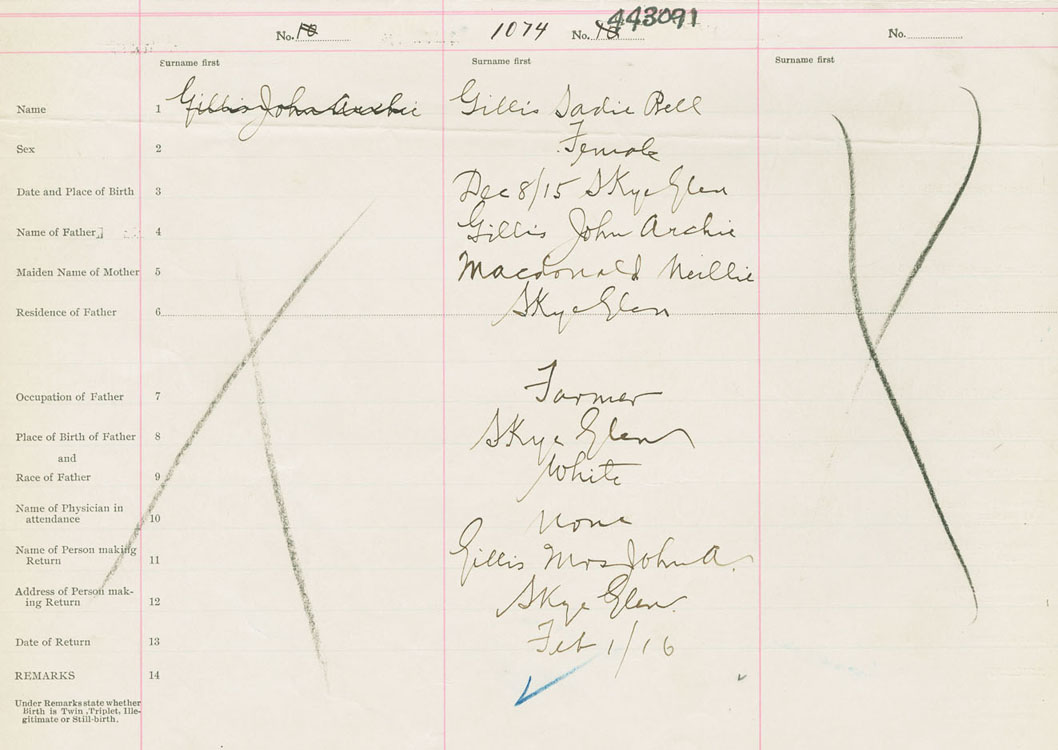 443091
No. 18 1074 No. 18 No.
Surname first Surname first Surname first
Name 1 Gillis John Archie Gillis Sadie Bell
Sex 2 Female
Date and Place of Birth 3 Dec 8/15 Skye Glen
Name of Father 4 Gillis John Archie
Maiden Name of Mother 5 Macdonald Neillie
Residence of Father 6 Skye Glen
Occupation of Father 7 Farmer
Place of Birth of Father 8 Skye Glen
and
Race of Father 9 White
Name of Physician in
attendance 10 None
Name of Person making
Return 11 Gillis Mrs John A.
Address of Person mak-
ing Return 12 Skye Glen.
Date of Return 13 Feb 1/16
REMARKS 14
Under Remarks state whether
Birth is Twin, Triplet, Ille-
gitimate or Still-birth.